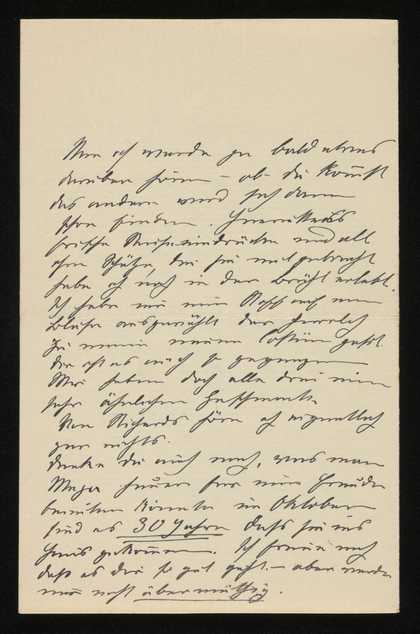 Nun ich werde ja bald etwas
darüber hören – ob du kommst
das andere wird sich dann
schon finden. Henriettens
frische Reiseeindrücke und all
ihre Schätze, die sie mitgebracht
habe ich noch in der Brühl erlebt.
Ich habe mir nur Stoff auch
Blusen ausgewählt der
zu meinem neuen Costüm paßt.
dir ist es auch so gegangen
Wir haben doch alle drei einen
sehr ähnlichen Geschmack.
Von Richards höre ich eigentlich
gar nichts.
denke du auch nach, was man
heuer für eine Freude
bereiten könnte im Oktober
sind es 30 Jahre daß sie ins
Haus gekommen. Ich freue mich
daß es dir so gut geht – aber werde
nur nicht übermüthig.